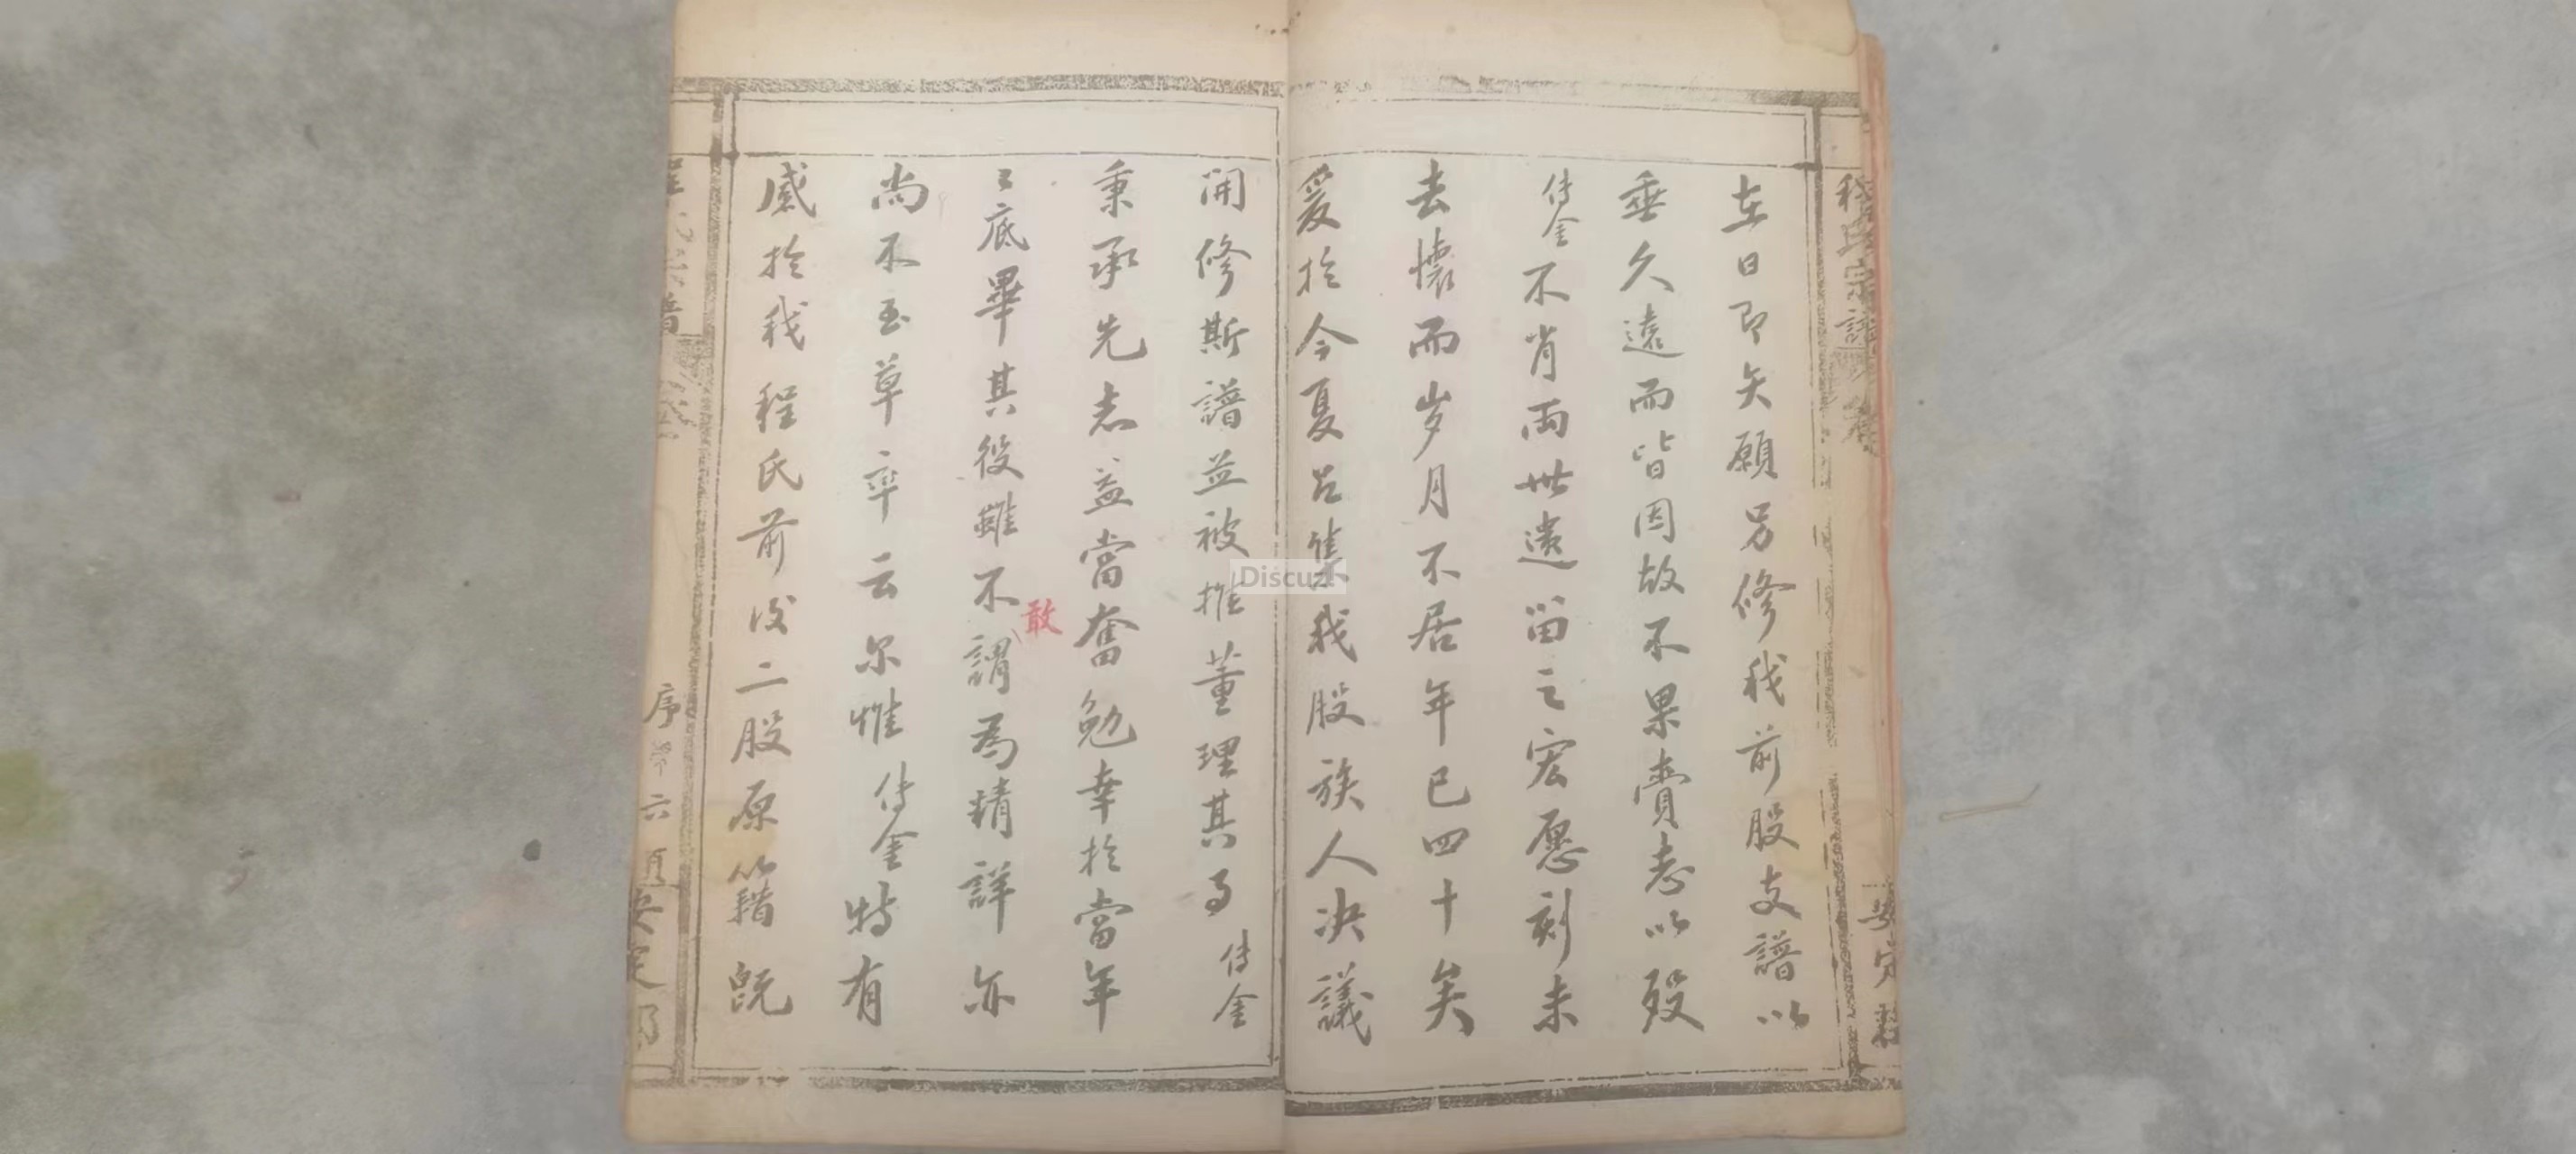 程氏宗譜 卷
安定郡
在日即矢願另修我前股支譜以
垂久遠而皆因故不果賫志以殁
傳金不肖両世遺留之宏愿刻未
去懷而岁月不居年已四十矣
爰於今夏召集我股族人决議
開修斯譜並被推董理其事傳金
秉承先志益當奮勉幸於當年
底畢其役雖不敢謂為精詳亦
尚不至草率云尔惟傳金特有
感於我程氏前後二股原籍既
序
六
Discuz!